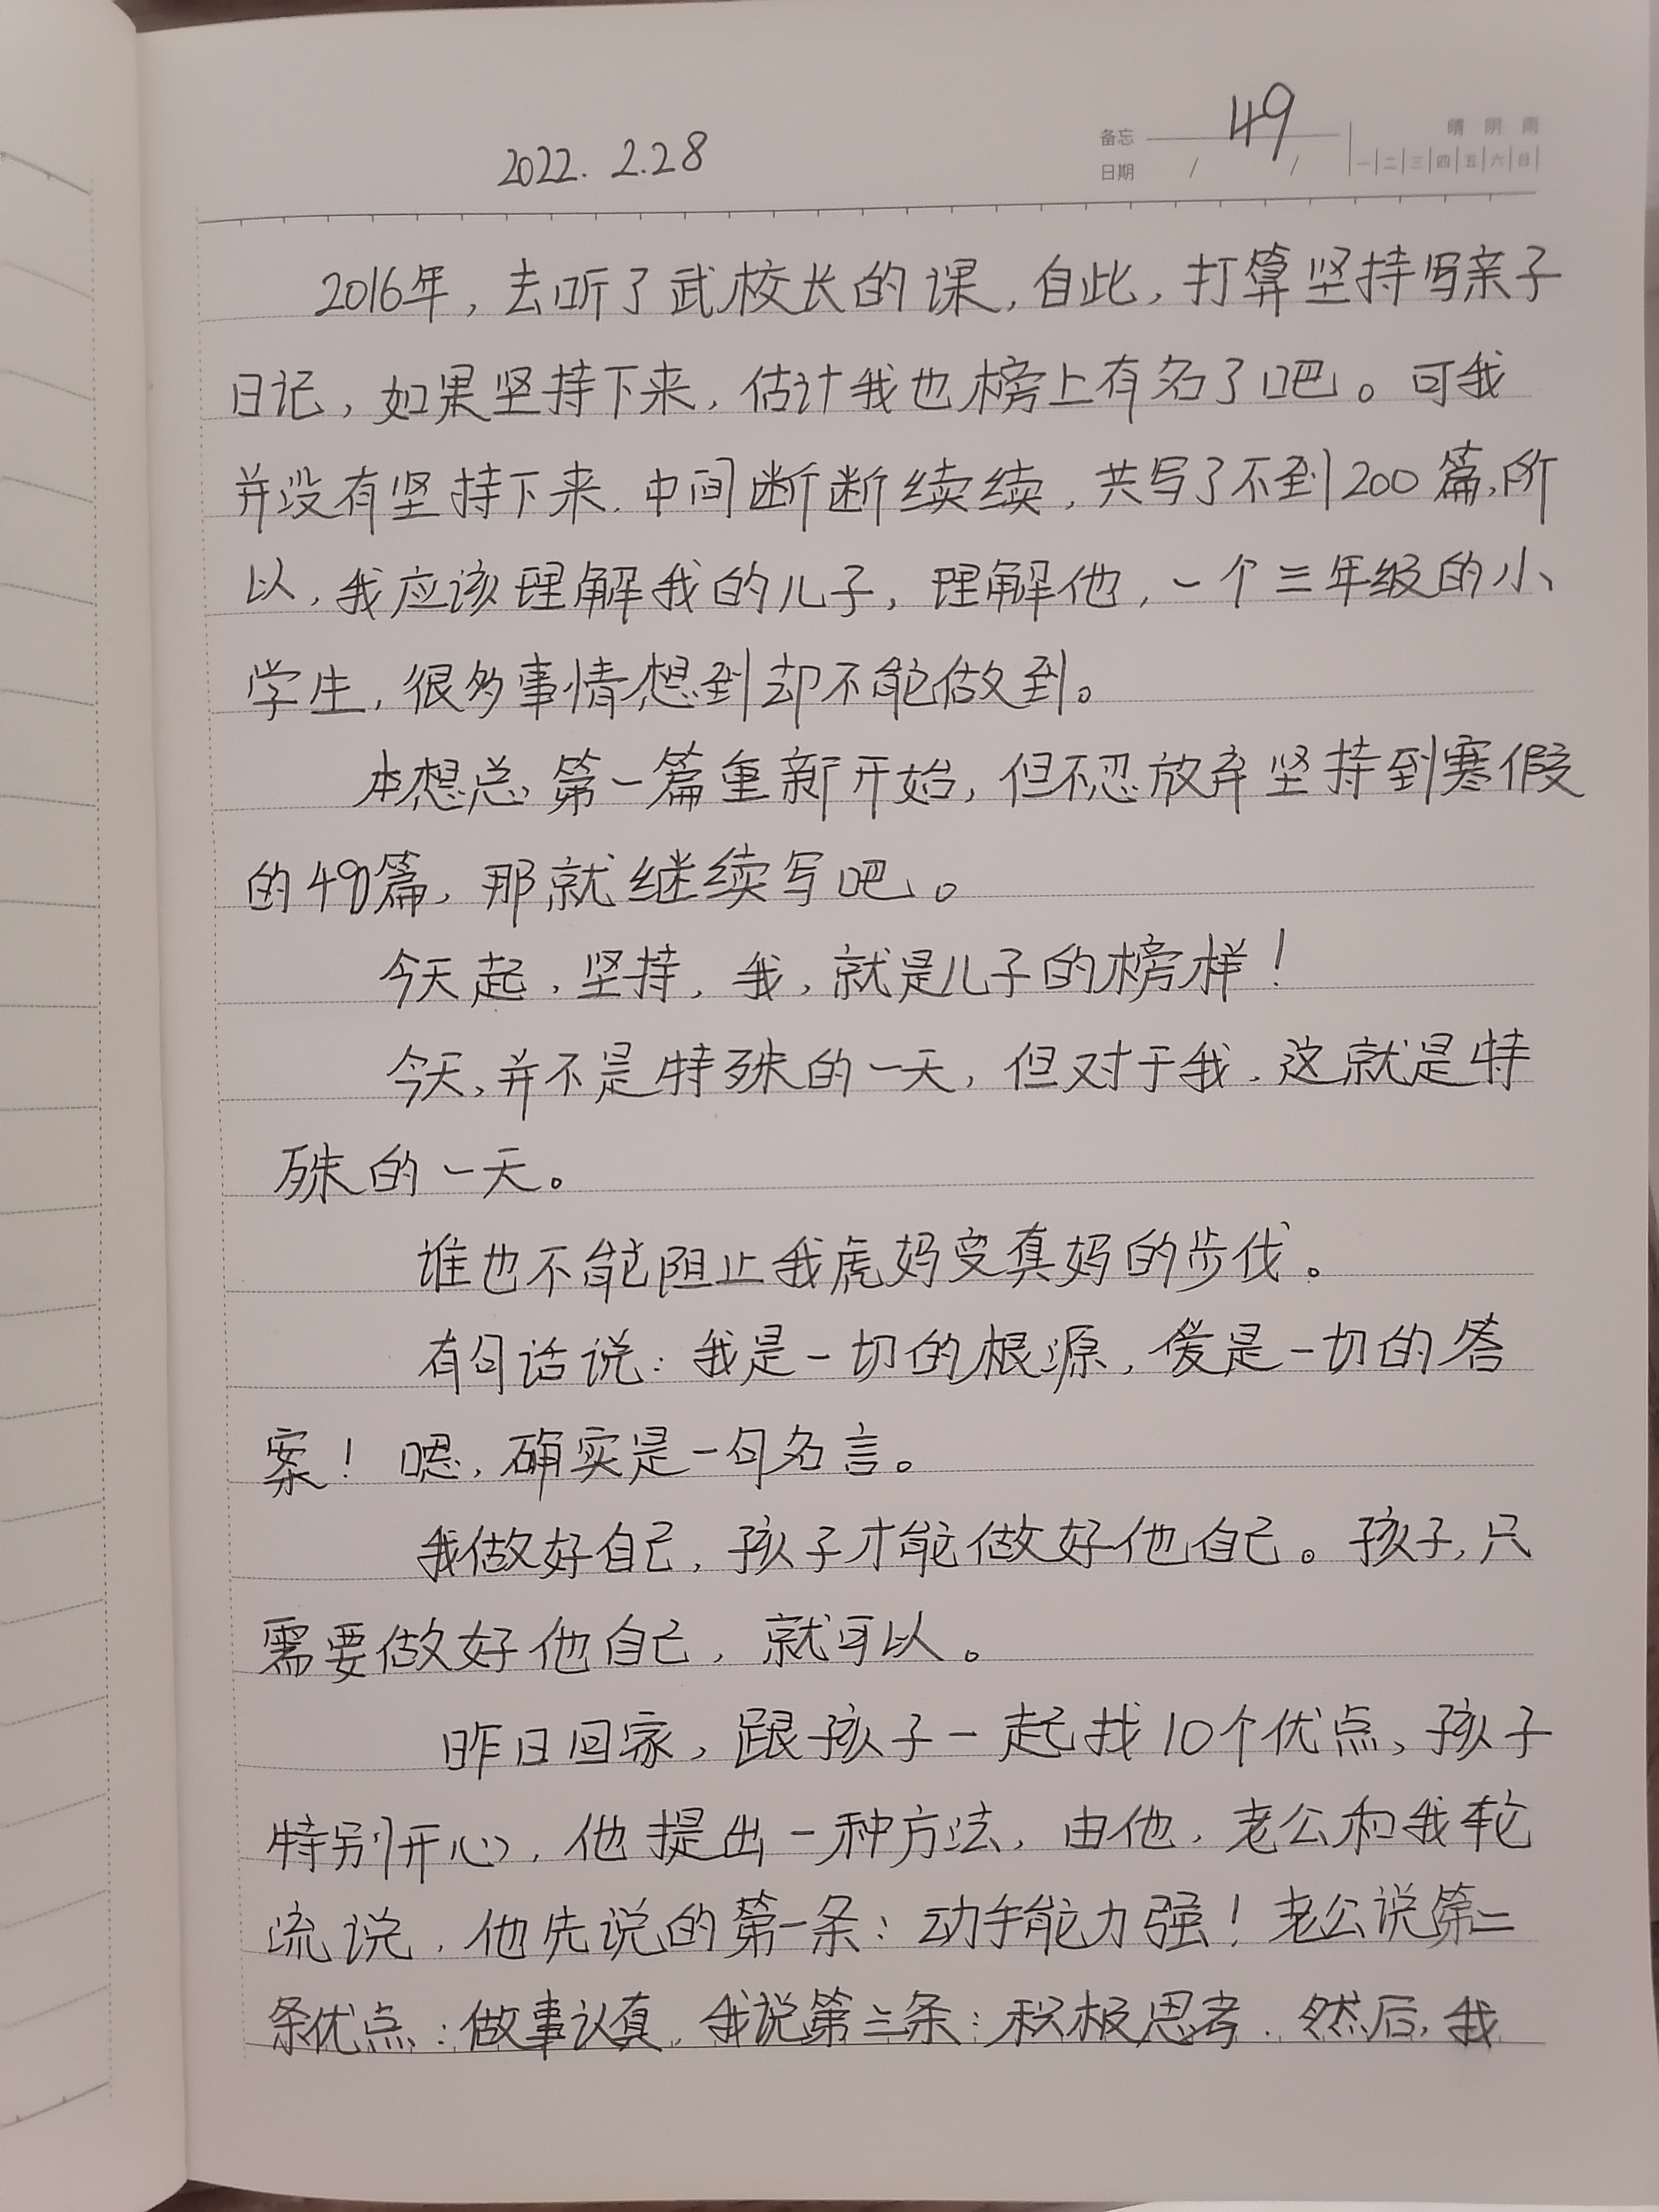 2022. 2.28
备忘 49 晴 阴 雨
日期 / / 一 二 三 四 五 六 日
2016年，去听了武校长的课，自此，打算坚持写亲子
日记，如果坚持下来，估计我也榜上有名了吧。可我
并没有坚持下来，中间断断续续，共写了不到200篇，所
以，我应该理解我的儿子，理解他，一个三年级的小
学生，很多事情想到却不能做到。
本想总第一篇重新开始，但不忍放弃坚持到寒假
的49篇，那就继续写吧。
今天起，坚持，我，就是儿子的榜样！
今天，并不是特殊的一天，但对于我，这就是特
殊的一天。
谁也不能阻止我虎妈变真妈的步伐。
有句话说：我是一切的根源，爱是一切的答
案！嗯，确实是一句名言。
我做好自己，孩子才能做好他自己。孩子，只
需要做好他自己，就可以。
昨日回家，跟孩子一起找10个优点，孩子
特别开心，他提出一种方法，由他，老公和我轮
流说，他先说的第一条：动手能力强！老公说第二
条优点：做事认真，我说第三条：积极思考．然后，我